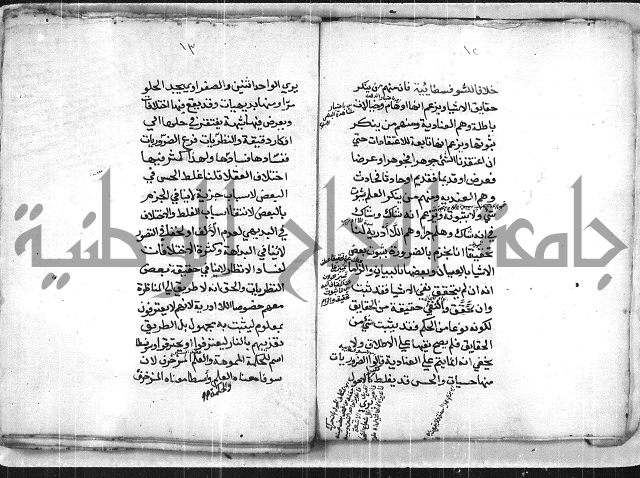 ١٢
خلافا للسوفسطائية فان منهم من ينكر
حقايق الاشياء ويزعم انها اوهام وخيالات
باطلة وهم العنادية ومنهم من ينكر
ثبوتها ويزعم انها تابعة للاعتقادات حتى
ان اعتقدنا الشئ جوهرا فجوهر او عرضا
فعرض او قديما فقديم او حادثا فحادث
وهم العندية ومنهم من ينكر العلم بثبوت
شئ ولا ثبوته ويزعم انه شاك وشاك
في انه شاك وهلم جرا وهم اللاادرية لنا
تحقيقا انا نجزم بالضرورة بثبوت بعض
الاشياء بالعيان وبعضها بالبيان والزاما
انه ان لم يتحقق نفي الاشياء فقد ثبت
وان تحقق والنفي حقيقة من الحقايق
لكونه نوعا من الحكم فقد يثبت شئ من
الحقايق فلم يصح نفيها على الاطلاق ولا
يخفى انه انما يتم على العنادية قالوا الضروريات
منها حسيات والحس قد يغلط كالاحول
١٣
يرى الواحد اثنين والصفراوي يجد الحلو
مرا ومنها بديهيات وقد يقع فيها اختلافات
وتعرض فيها شبهة يفتقر في حلها الى
افكار دقيقة والنظريات فرع الضروريات
ففسادها فسادها ولهذا كثر فيها
اختلاف العقلا قلنا غلط الحس في
البعض لاسباب جزئية لا ينافي الجزم
بالبعض لانتفا اسباب الغلط والاختلاف
في البديهي لعدم الالف او لخفا في التصور
لا ينافي البداهة وكثرة الاختلافات
لفساد الانظار لا ينافي حقيقة بعض
النظريات والحق انه لا طريق الى المناظرة
معهم خصوصا اللاادرية لانهم لا يعترفون
بمعلوم ليثبت به مجهول بل الطريق
تعذيبهم بالنار ليعترفوا او يحترقوا وسوفسطا
اسم للحكمة المموهة والعلم المزخرف لان
سوفا معناه العلم واسطا معناه المزخرف
جامعة النجاح الوطنية